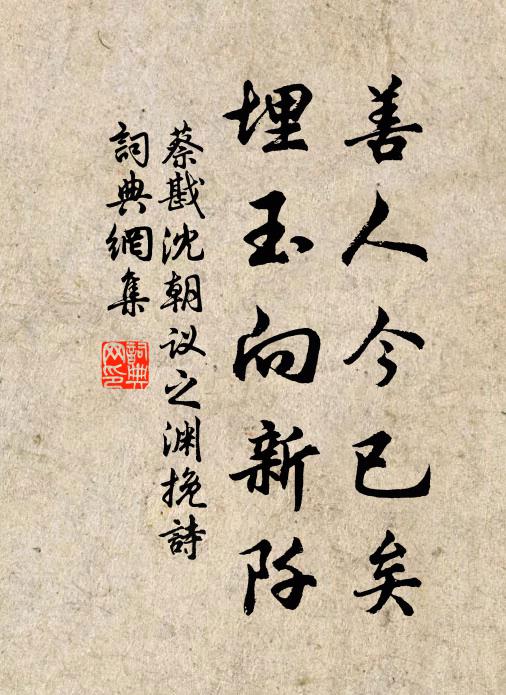 善人今已矣
埋玉向新阡
蔡戡沈朝议之渊挽詩
詞典網集
詞典網印